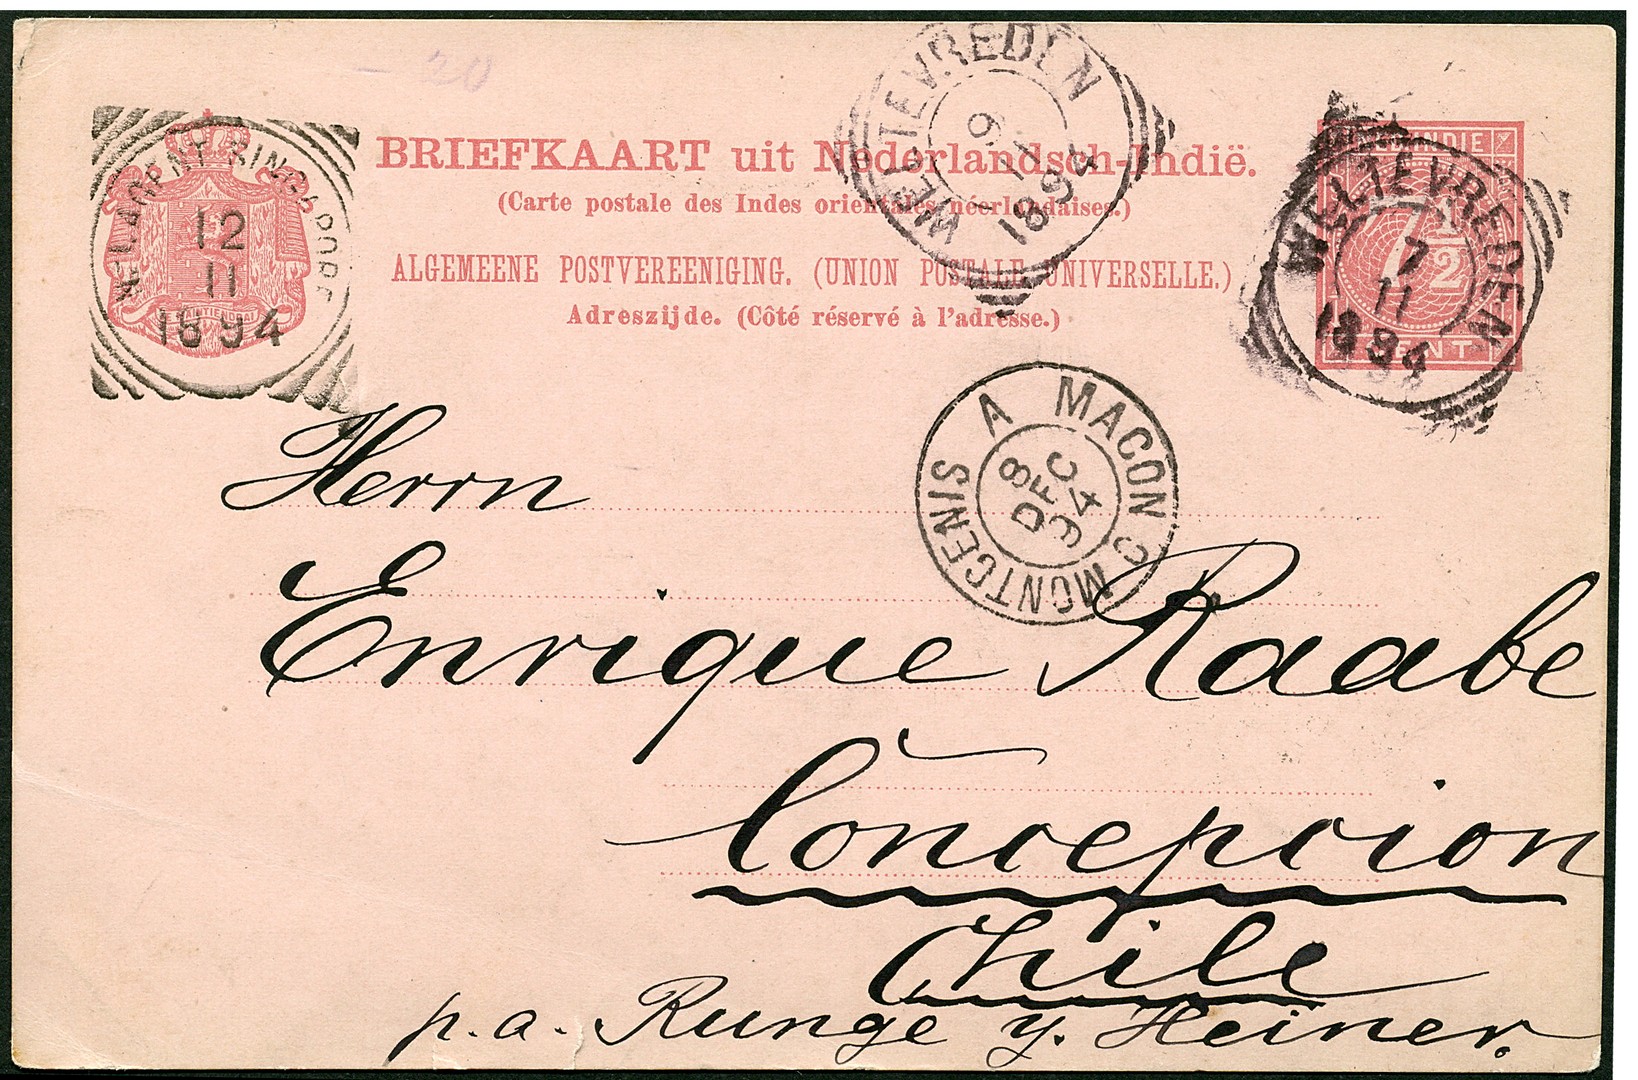 - 20
BRIEFKAART uit Nederlandsch-Indië.
(Carte postale des Indes orientales néerlandaises.)
ALGEMEENE POSTVEREENIGING. (UNION POSTALE UNIVERSELLE.)
Adreszijde. (Côté réservé à l'adresse.)
N.I. AGENT SINGAPORE
12
11
1894
JE MAINTIENDRAI
WELTEVREDEN
6
11
1894
WELTEVREDEN
7
11
1894
INDIE
7 1/2
CENT
A MACON C MONTCENIS
8
DEC
94
Herrn
Enrique Raabe
Concepcion
Chile
p. a. Runge y. Heiner.